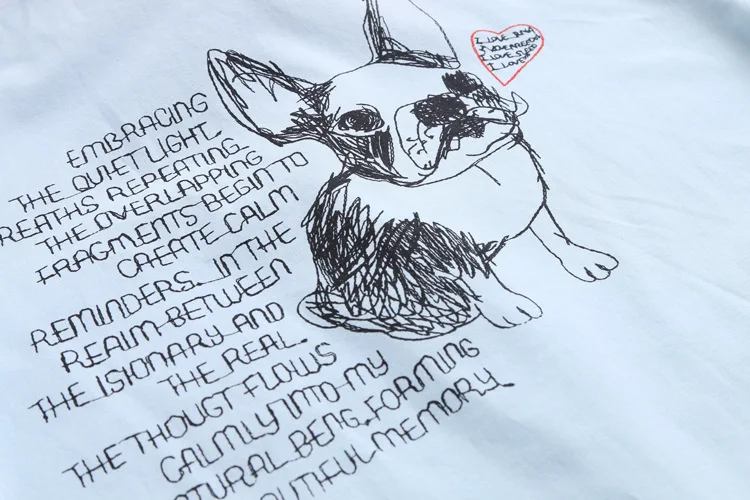 EMBRACING
THE QUIET LIGHT,
REATHS REPEATING
THE OVERLAPPING
FRAGMENTS BEGIN TO
CREATE CALM
REMINDERS. IN THE
REALM BETWEEN
THE ISIONARY AND
THE REAL.
THE THOUGT FLOWS
CALMLY INTO MY
ATURAL BENG, FORMING
UTIFUL MEMORY.
I LOVE
I LOVE
I LOVE